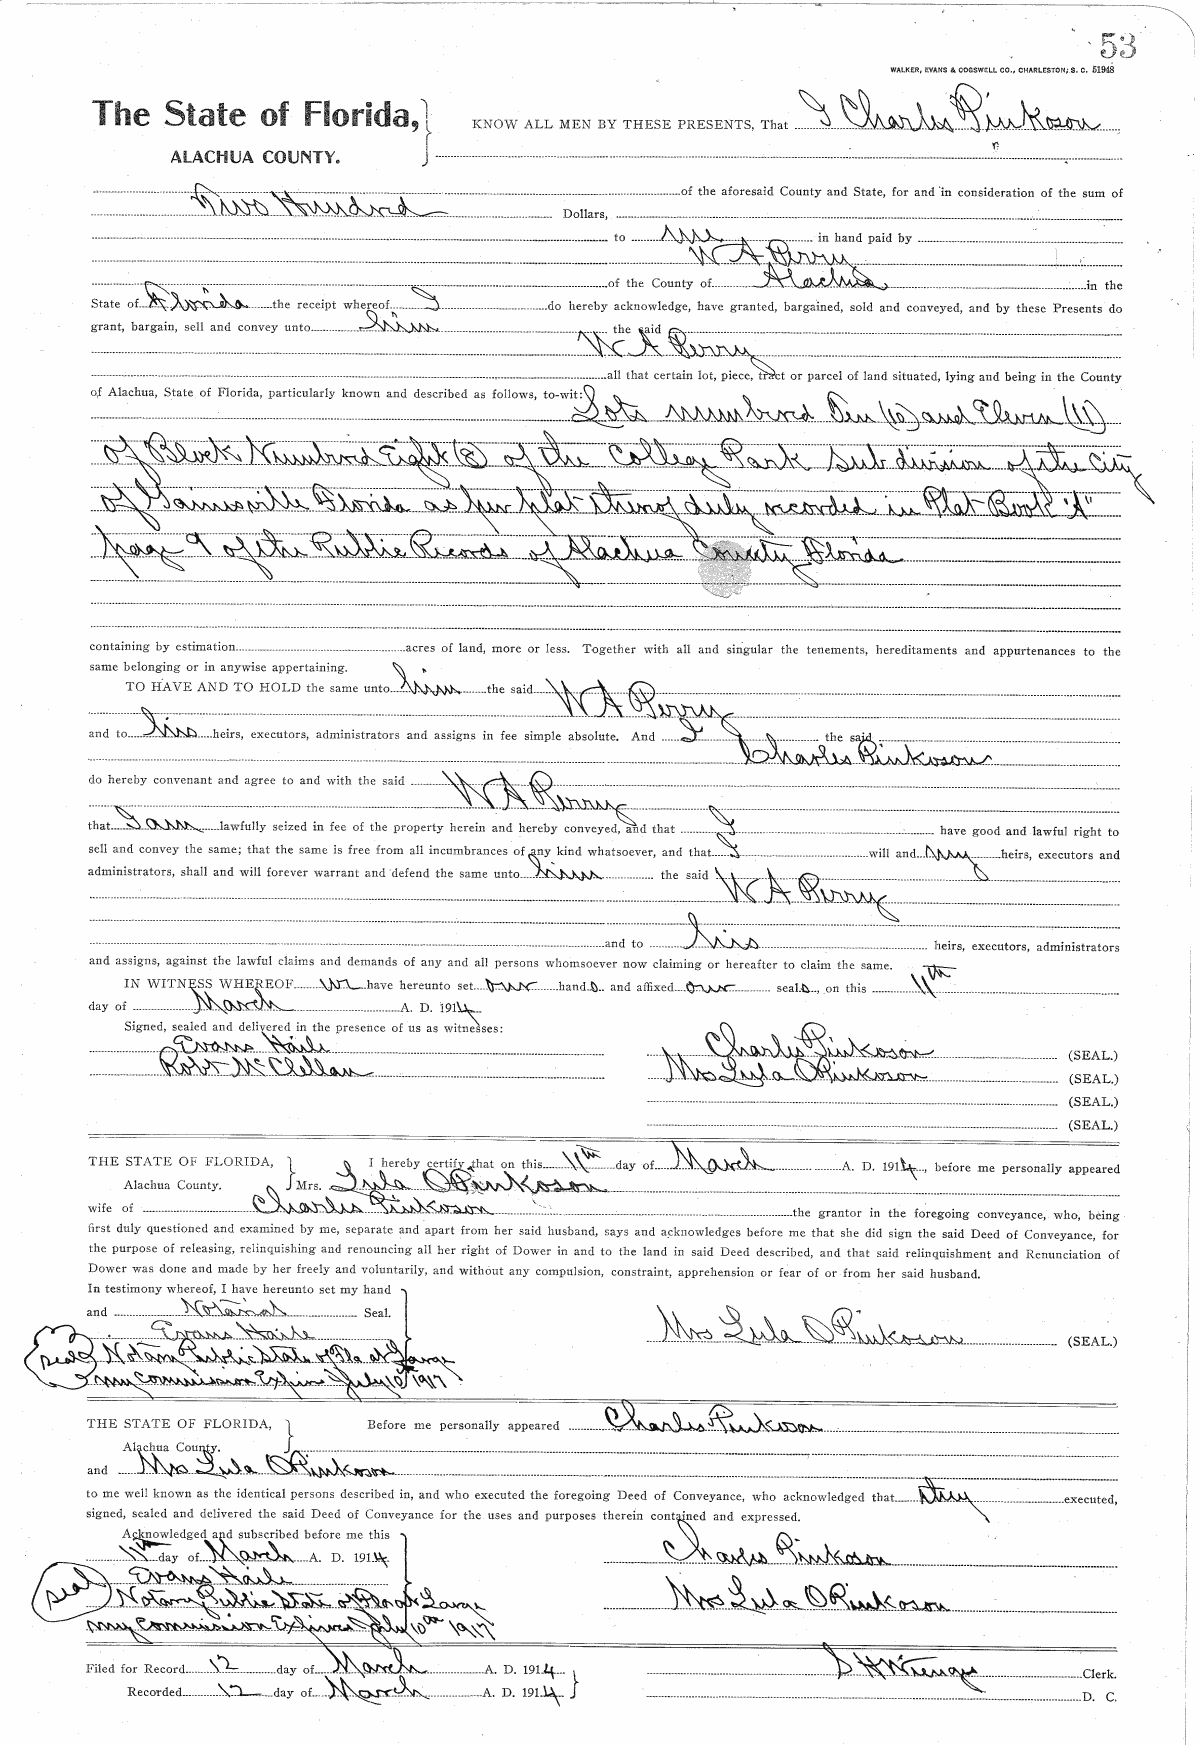 53
WALKER, EVANS & COGSWELL CO., CHARLESTON, S. C. 51948
The State of Florida,
KNOW ALL MEN BY THESE PRESENTS, That I Charles Pinkoson
ALACHUA COUNTY.
of the aforesaid County and State, for and in consideration of the sum of
Two Hundred Dollars,
to me in hand paid by
W A Perry
of the County of Alachua in the
State of Florida the receipt whereof I do hereby acknowledge, have granted, bargained, sold and conveyed, and by these Presents do
grant, bargain, sell and convey unto him the said
W A Perry
all that certain lot, piece, tract or parcel of land situated, lying and being in the County
of Alachua, State of Florida, particularly known and described as follows, to-wit:
Lots numbered Ten (10) and Eleven (11)
of Block Numbered Eight (8) of the College Park Subdivision of the City
of Gainesville Florida as per plat thereof duly recorded in Plat Book "A"
page 9 of the Public Records of Alachua County Florida
containing by estimation acres of land, more or less. Together with all and singular the tenements, hereditaments and appurtenances to the
same belonging or in anywise appertaining.
TO HAVE AND TO HOLD the same unto him the said W A Perry
and to his heirs, executors, administrators and assigns in fee simple absolute. And I the said
Charles Pinkoson
do hereby convenant and agree to and with the said W A Perry
that I am lawfully seized in fee of the property herein and hereby conveyed, and that I have good and lawful right to
sell and convey the same; that the same is free from all incumbrances of any kind whatsoever, and that I will and my heirs, executors and
administrators, shall and will forever warrant and defend the same unto him the said W A Perry
and to his heirs, executors, administrators
and assigns, against the lawful claims and demands of any and all persons whomsoever now claiming or hereafter to claim the same.
IN WITNESS WHEREOF we have hereunto set our hands and affixed our seals, on this 11th
day of March A. D. 1914
Signed, sealed and delivered in the presence of us as witnesses:
Evans Haile Charles Pinkoson (SEAL.)
Robt McClellan Mrs Lula O Pinkoson (SEAL.)
(SEAL.)
(SEAL.)
THE STATE OF FLORIDA, I hereby certify that on this 11th day of March A. D. 1914, before me personally appeared
Alachua County. Mrs. Lula O Pinkoson
wife of Charles Pinkoson the grantor in the foregoing conveyance, who, being
first duly questioned and examined by me, separate and apart from her said husband, says and acknowledges before me that she did sign the said Deed of Conveyance, for
the purpose of releasing, relinquishing and renouncing all her right of Dower in and to the land in said Deed described, and that said relinquishment and Renunciation of
Dower was done and made by her freely and voluntarily, and without any compulsion, constraint, apprehension or fear of or from her said husband.
In testimony whereof, I have hereunto set my hand
and Notarial Seal.
Evans Haile Mrs Lula O Pinkoson (SEAL.)
seal Notary Public State of Fla at Large
my commission Expires July 10th 1917
THE STATE OF FLORIDA, Before me personally appeared Charles Pinkoson
Alachua County.
and Mrs Lula O Pinkoson
to me well known as the identical persons described in, and who executed the foregoing Deed of Conveyance, who acknowledged that they executed,
signed, sealed and delivered the said Deed of Conveyance for the uses and purposes therein contained and expressed.
Acknowledged and subscribed before me this
11th day of March A. D. 1914 Charles Pinkoson
Evans Haile
seal Notary Public State of Flora at Large Mrs Lula O Pinkoson
my commission Expires July 10th 1917
Filed for Record 12 day of March A. D. 1914 S H Wienges Clerk.
Recorded 12 day of March A. D. 1914 D. C.